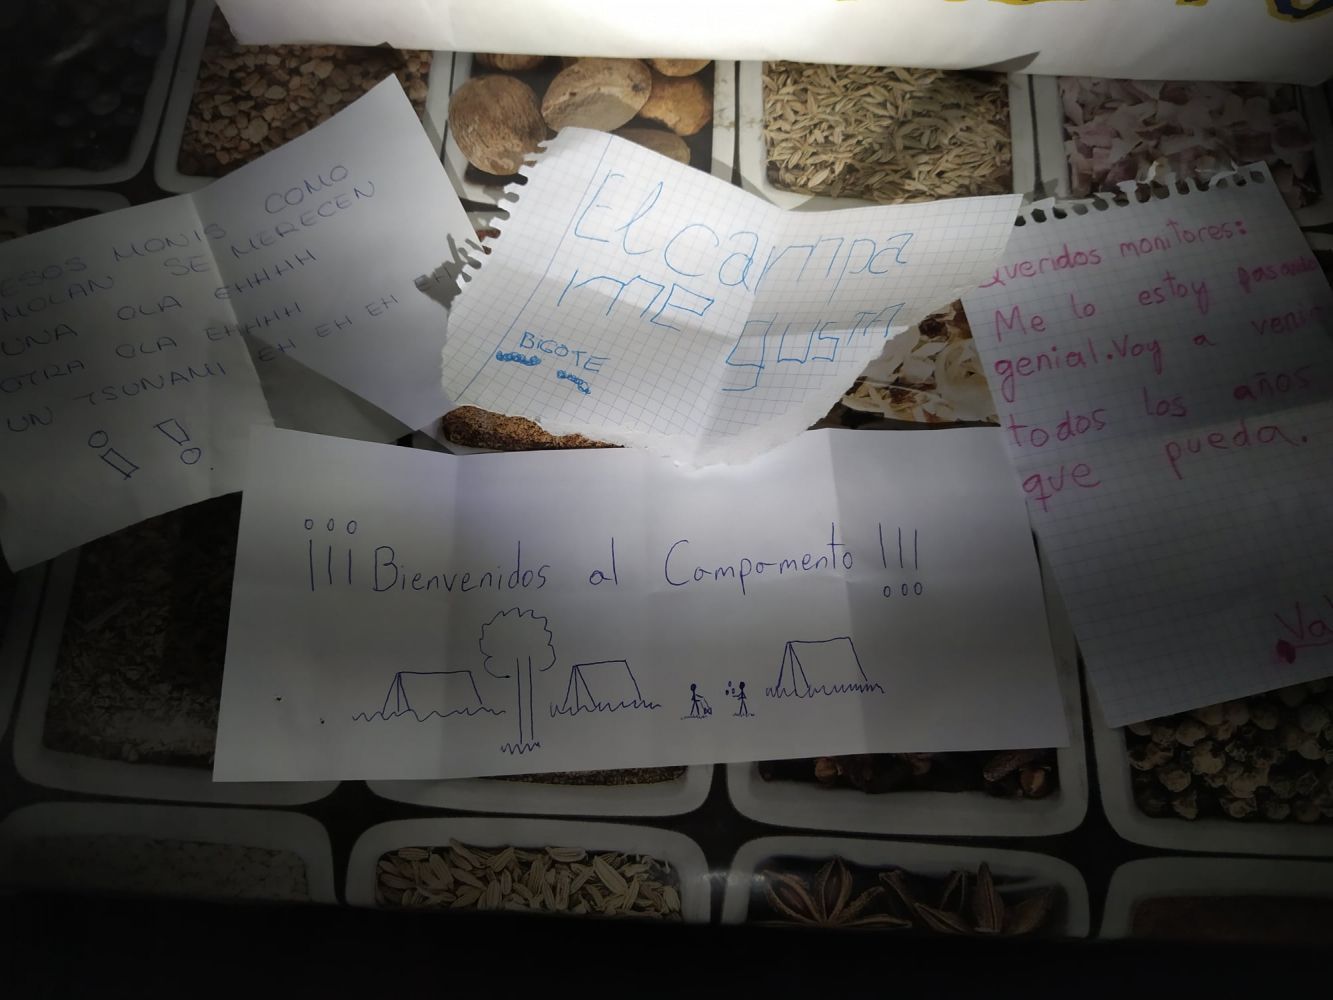 ESOS MONIS COMO
MOLAN SE MERECEN
UNA OLA EHHHH
OTRA OLA EHHHH
UN TSUNAMI EH EH EH EH
¡ !
El campa
me gusta
BIGOTE
Queridos monitores:
Me lo estoy pasando
genial. Voy a venir
todos los años
que pueda.
¡¡¡Bienvenidos al Campamento!!!